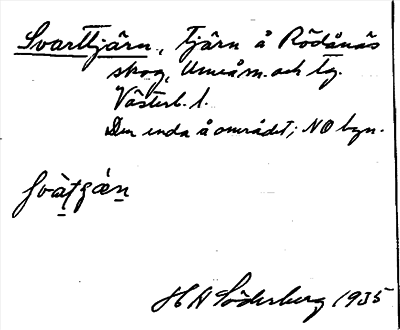 Svarttjärn, tjärn å Rödånäs
skog, Umeå m. och tg.
Västerb. l.
Den enda å området; NO byn.
H A Söderberg 1935